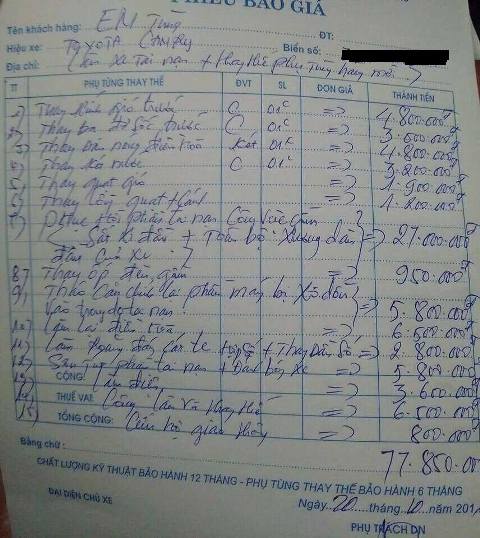 PHIẾU BÁO GIÁ
Tên khách hàng: EM Tùng ĐT:
Hiệu xe: TOYOTA CAMRY Biển số:
Địa chỉ: xe Tai nạn + thay thế phụ Tùng
TT PHỤ TÙNG THAY THẾ ĐVT SL ĐƠN GIÁ THÀNH TIỀN
1) Thay kính gió trước C 01c => 4.800.000đ
2) Thay ba đờ sốc trước C 01c => 3.600.000đ
3) Thay nóng điều hòa két 01c => 4.800.000đ
4) Thay két nước C 01c => 3.200.000đ
5) Thay quạt gió => 1.900.000đ
6) Thay lồng quạt => 1.200.000đ
7) Phục hồi phần tai nạn
Sắt xi đầu + Toàn bộ xương đầu => 27.000.000đ
đầu của xe
8) Thay ốp đèn gầm => 950.000đ
9) Tháo Cân chỉnh lại phần máy bị xô dồn
vào trong do tai nạn => 5.800.000đ
10) làm lại điều hòa => 6.500.000đ
11) làm + Thay dầu số => 2.800.000đ
12) Sơn phần tai nạn + xe => 5.800.000đ
CỘNG:
13) làm điện => 3.600.000đ
THUẾ VAT
14) Công làm và thay thế => 6.500.000đ
TỔNG CỘNG:
15) Cứu hộ giao thông => 800.000đ
Bằng chữ: 77.850.000
CHẤT LƯỢNG KỸ THUẬT BẢO HÀNH 12 THÁNG - PHỤ TÙNG THAY THẾ BẢO HÀNH 6 THÁNG
Ngày 20 tháng 10 năm 201
ĐẠI DIỆN CHỦ XE PHỤ TRÁCH DN